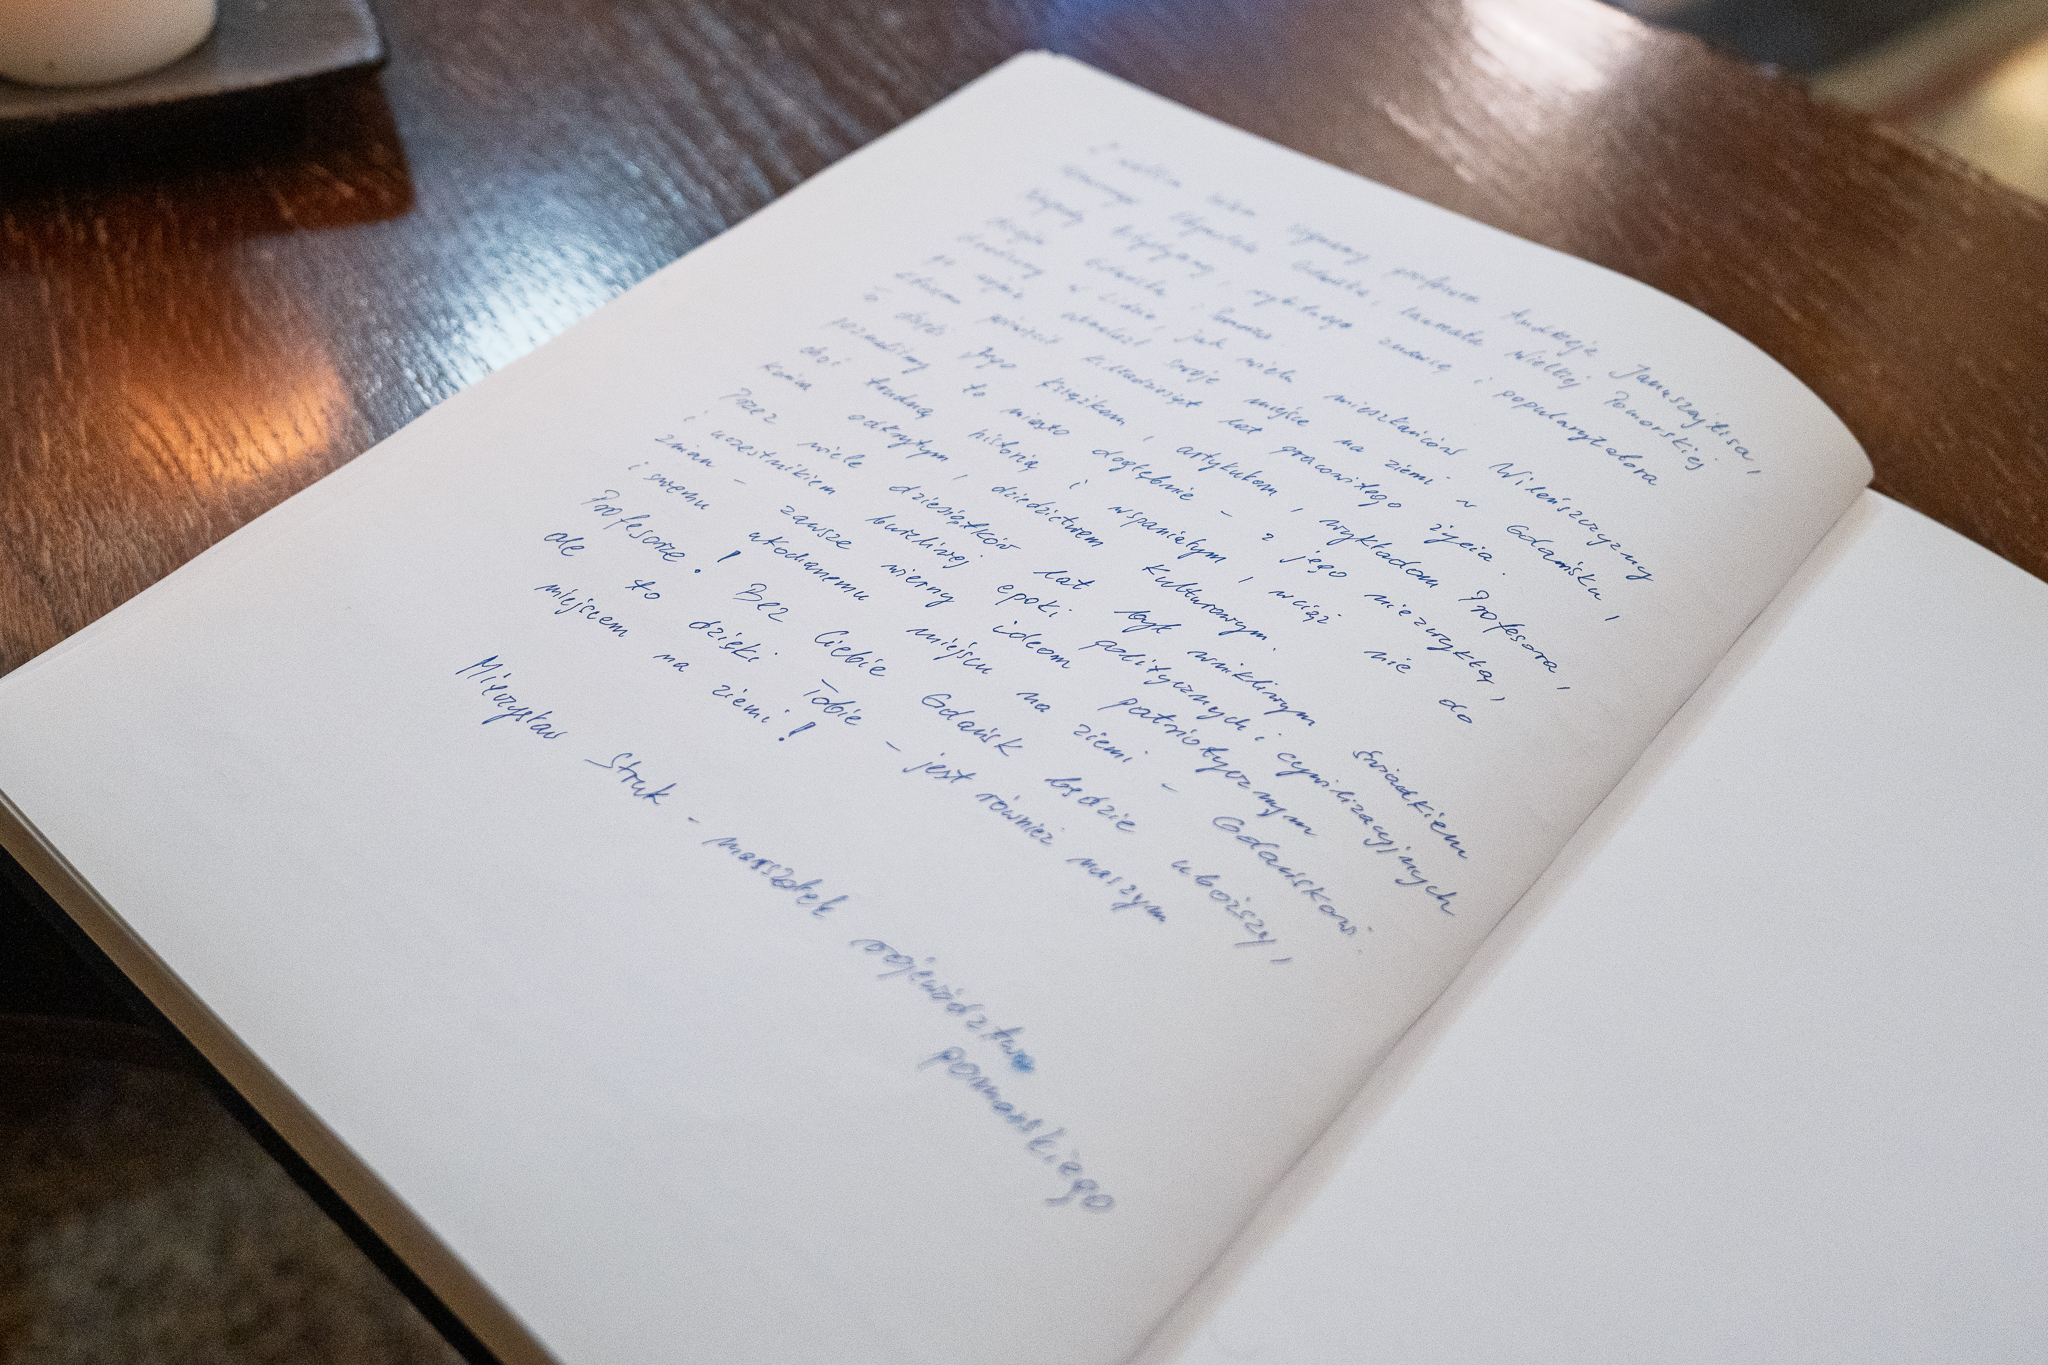 z wielkim żalem żegnamy profesora Andrzeja Januszajtisa,
Honorowego Obywatela Gdańska, laureata Wielkiej Pomorskiej
Nagrody Artystycznej, wybitnego znawcę i popularyzatora
dziejów Gdańska i Pomorza.
Urodzony w Lidzie, jak wielu mieszkańców Wileńszczyzny
po wojnie odnalazł swoje miejsce na ziemi w Gdańsku,
któremu poświęcił kilkadziesiąt lat pracowitego życia.
To dzięki Jego książkom, artykułom, wykładom Profesora,
poznaliśmy to miasto dogłębnie - z jego niezwykłą,
choć trudną historią i wspaniałym, wciąż nie do
końca odkrytym, dziedzictwem kulturowym.
Przez wiele dziesiątków lat był wnikliwym świadkiem
i uczestnikiem burzliwej epoki politycznych i cywilizacyjnych
zmian - zawsze wierny ideom patriotycznym
i swemu ukochanemu miejscu na ziemi - Gdańskowi.
Profesorze! Bez Ciebie Gdańsk będzie uboższy,
ale to dzięki Tobie - jest również naszym
miejscem na ziemi!
Mieczysław Struk - marszałek województwa
pomorskiego